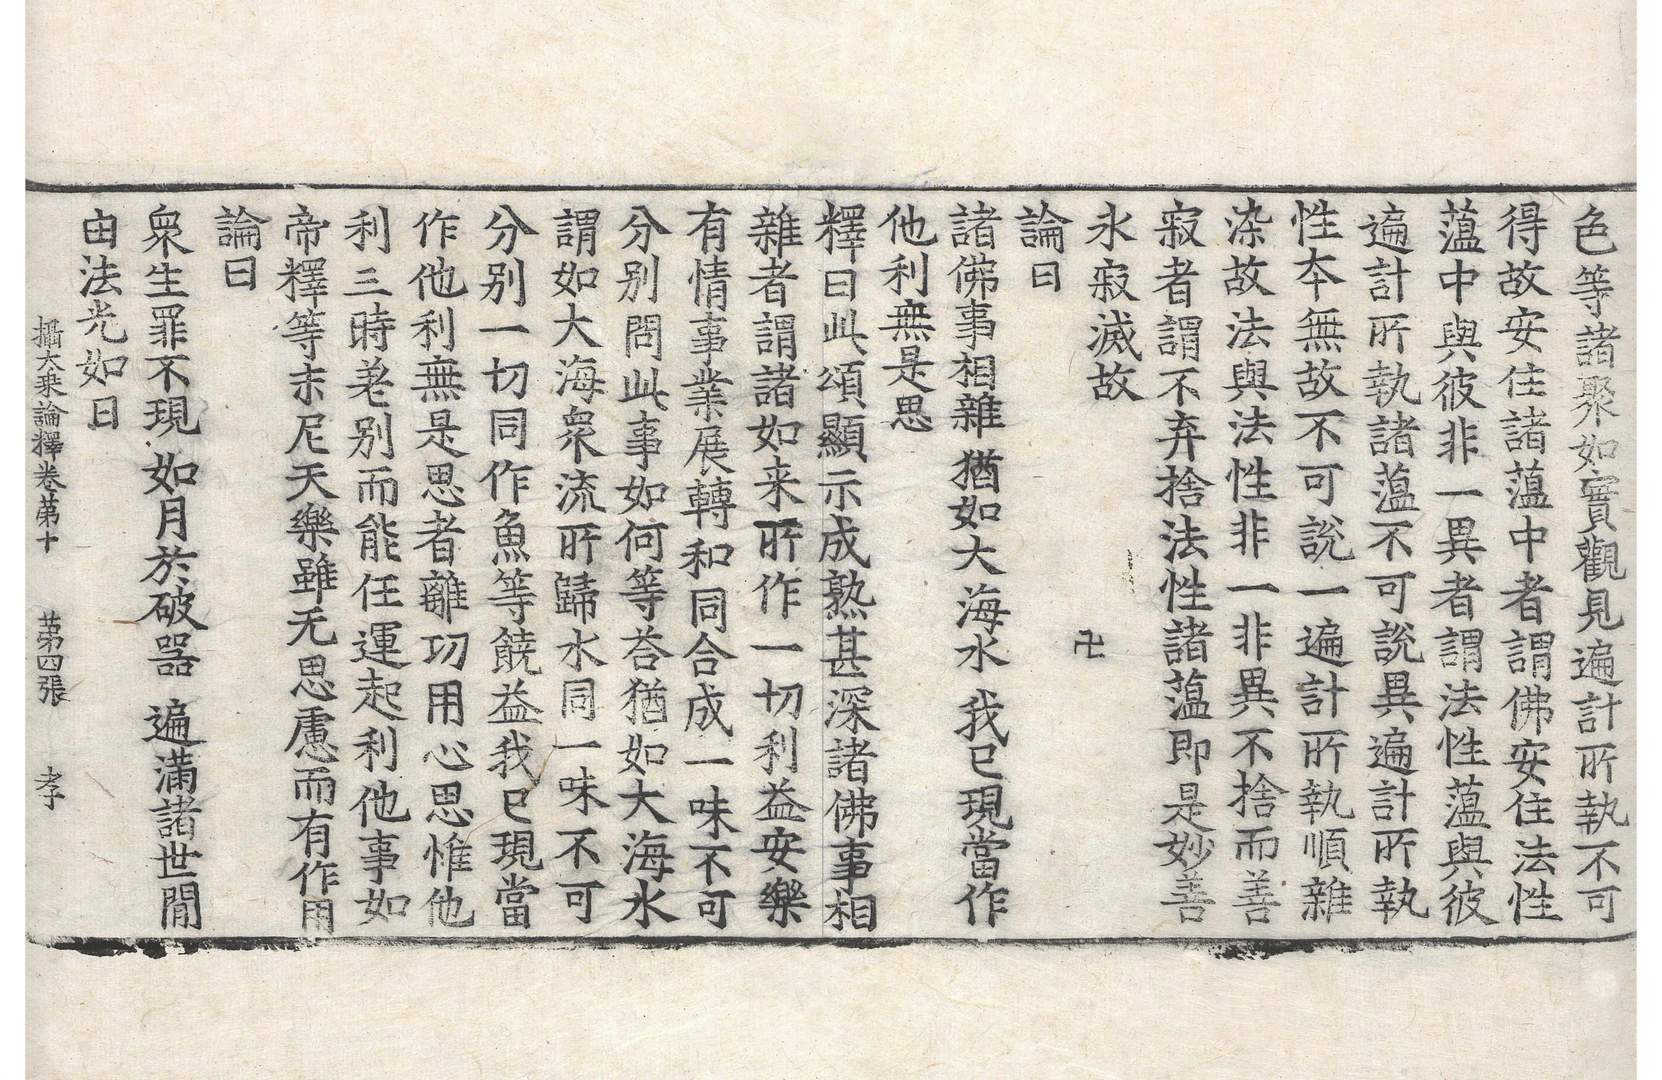 色等諸聚如實觀見遍計所執不可
得故安住諸蘊中者謂佛安住法性
蘊中與彼非一異者謂法性蘊與彼
遍計所執諸蘊不可說異遍計所執
性本無故不可說一遍計所執順雜
染故法與法性非一非異不捨而善
寂者謂不弃捨法性諸蘊即是妙善
永寂滅故
卍
論曰
諸佛事相雜 猶如大海水 我已現當作
他利無是思
釋曰此頌顯示成熟甚深諸佛事相
雜者謂諸如来所作一切利益安樂
有情事業展轉和同合成一味不可
分别問此事如何等荅猶如大海水
謂如大海衆流所歸水同一味不可
分别一切同作魚等饒益我已現當
作他利無是思者離功用心思惟他
利三時差别而能任運起利他事如
帝釋等末尼天樂雖无思慮而有作用
論曰
衆生罪不現 如月於破器 遍滿諸世間
由法光如日
攝大乘論釋卷第十 第四張 孝